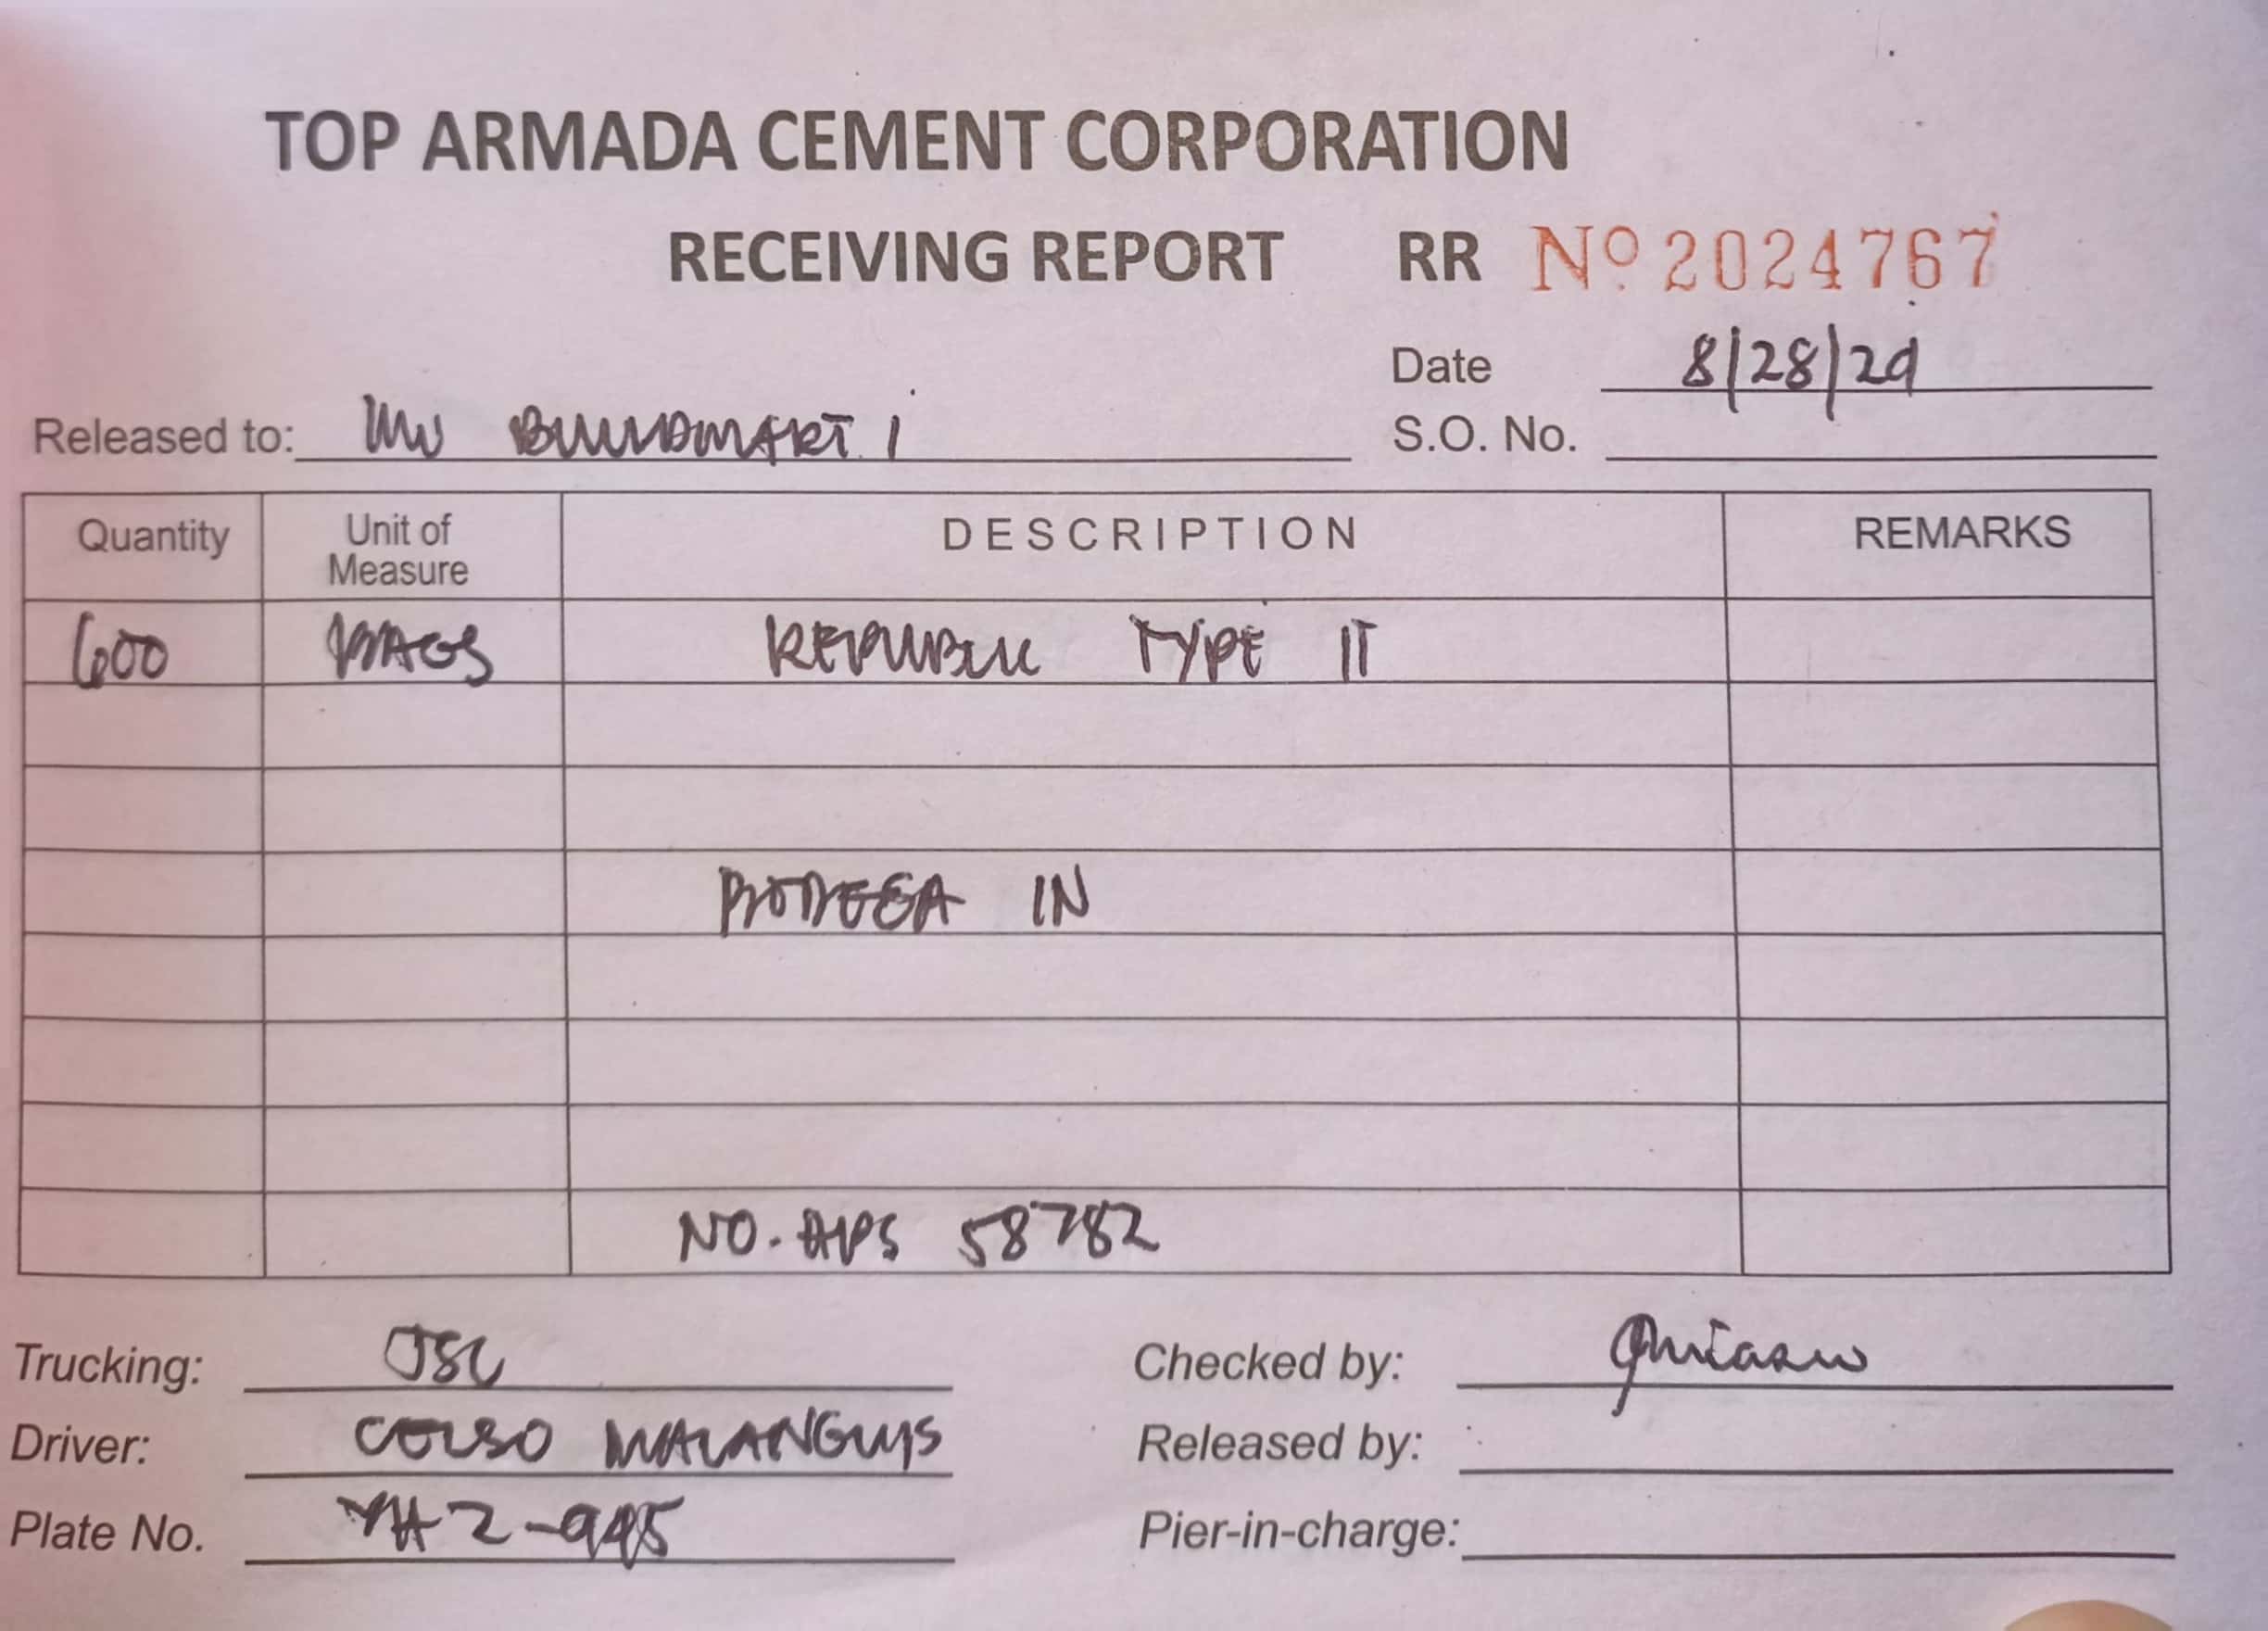 TOP ARMADA CEMENT CORPORATION
RECEIVING REPORT RR Nº 2024767
Date 8/28/24
Released to: MV BUILDMART 1
S.O. No.
Quantity Unit of Measure DESCRIPTION REMARKS
600 BAGS REPUBLIC TYPE II
BODEGA IN
NO. APS 58782
Trucking: JSC Checked by:
Driver: CELSO Released by:
Plate No. Pier-in-charge: